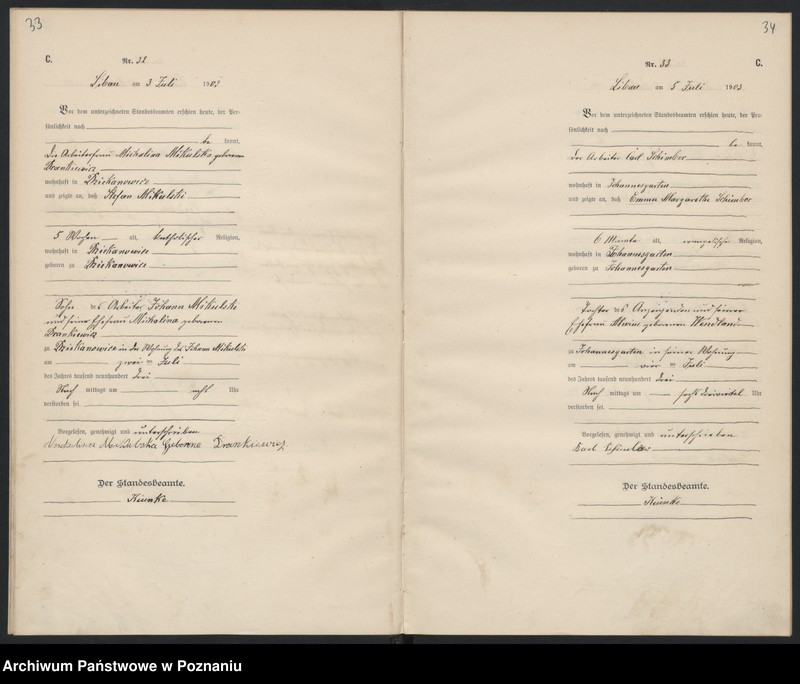 33
C.
Nr. 32
Libau am 3 Juli 1903
Vor dem unterzeichneten Standesbeamten erschien heute, der Per-
sönlichkeit nach
be kannt,
Die Arbeiterfrau Michalina Mikulska geborenen
Drankiewicz
wohnhaft in Dziekanowice
und zeigte an, daß Stefan Mikulski
5 Wochen alt, katholischer Religion,
wohnhaft in Dziekanowice
geboren zu Dziekanowice
Sohn des Arbeiter Johann Mikulski
und seiner Ehefrau Michalina geborenen
Drankiewicz
zu Dziekanowice in der Wohnung des Johann Mikulski
am zwei ten Juli
des Jahres tausend neunhundert drei
Nach mittags um acht Uhr
verstorben sei.
Vorgelesen, genehmigt und unterschrieben
Geborene Drankiewicz
Der Standesbeamte.
34
Nr. 33
C.
Libau am 5 Juli 1903
Vor dem unterzeichneten Standesbeamten erschien heute, der Per-
sönlichkeit nach
be kannt,
Der Arbeiter Carl Schimber
wohnhaft in Johannesgarten
und zeigte an, daß Emma Margarethe Schimber
6 Monate alt, evangelischer Religion,
wohnhaft in Johannesgarten
geboren zu Johannesgarten
Tochter des Anzeigenden und seiner
Ehefrau geborenen Wendland
zu Johannesgarten in seiner Wohnung
am vier ten Juli
des Jahres tausend neunhundert drei
Nach mittags um sechs dreiviertel Uhr
verstorben sei.
Vorgelesen, genehmigt und unterschrieben
Carl Schimber
Der Standesbeamte.
Archiwum Państwowe w Poznaniu